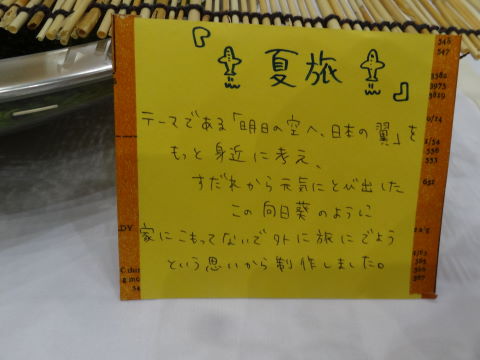 『夏旅』
テーマである「明日の空へ、日本の翼」を
もっと身近に考え、
すだれから元気にとび出した
この向日葵のように
家にこもってないで外に旅にでよう
という思いから制作しました。
546
547
3382
3975
3819
0/24
2/54
556
553
652